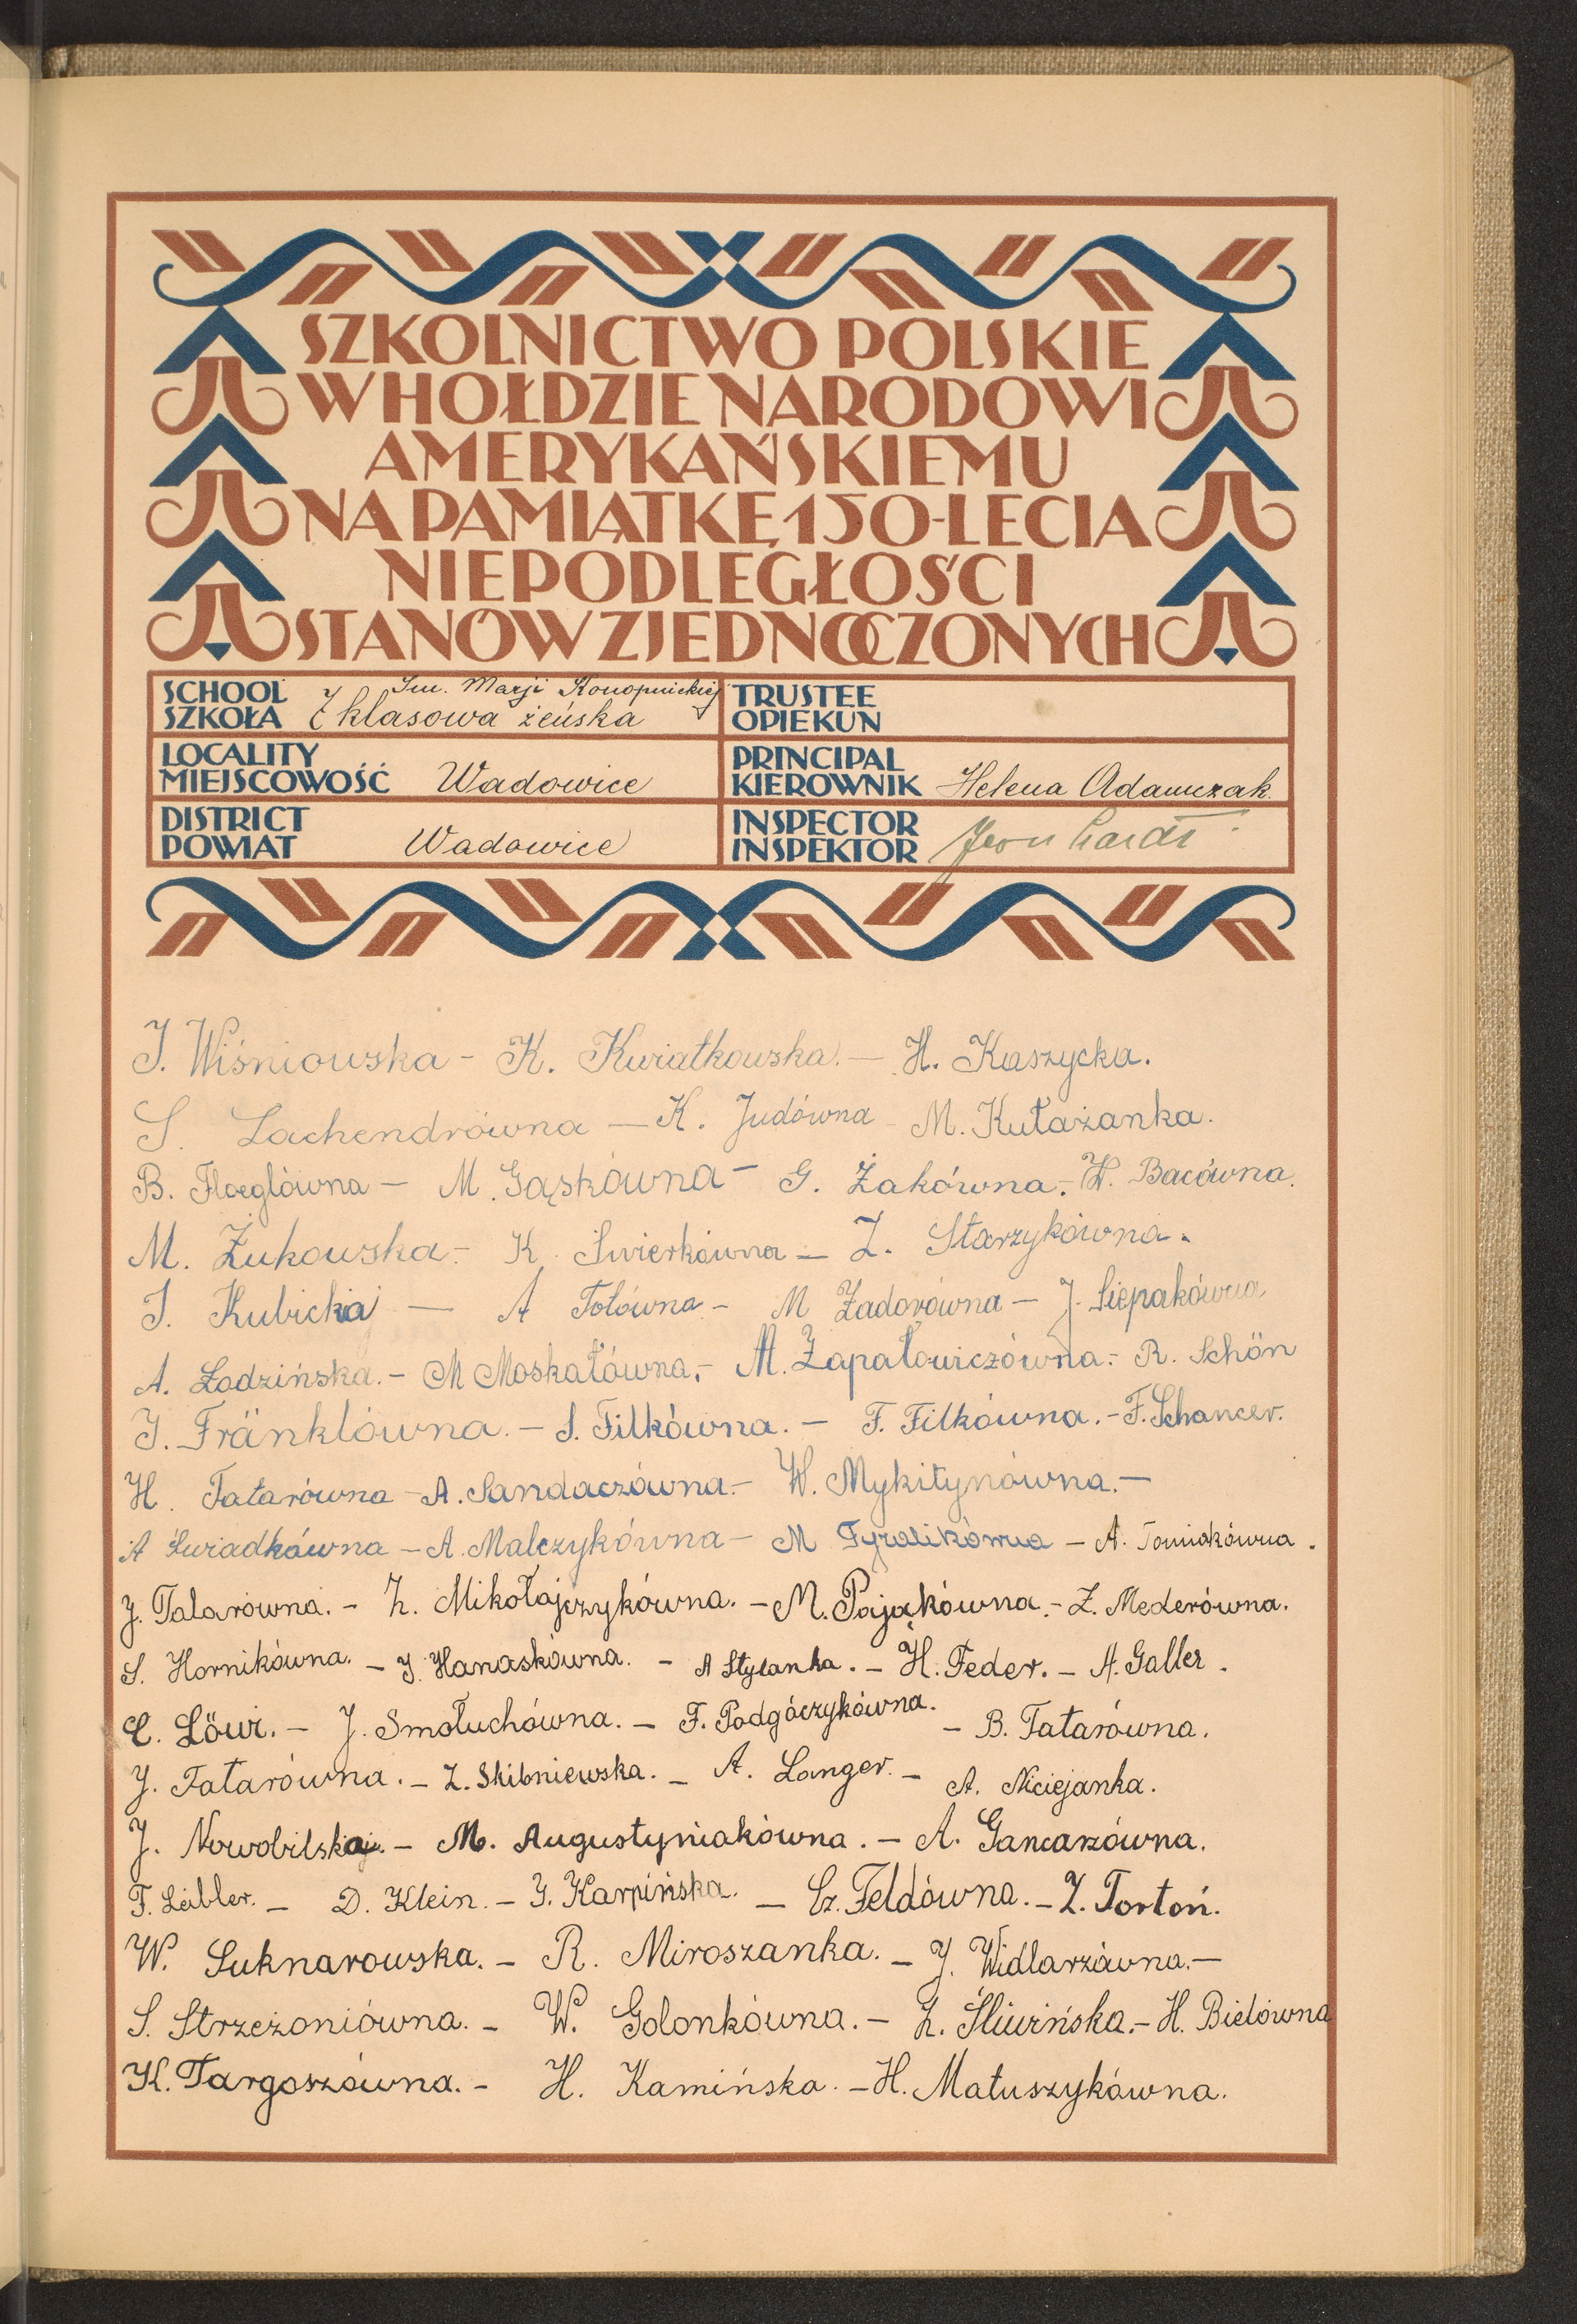 SZKOLNICTWO POLSKIE
W HOŁDZIE NARODOWI
AMERYKAŃSKIEMU
NA PAMIĄTKĘ 150-LECIA
NIEPODLEGŁOŚCI
STANÓW ZJEDNOCZONYCH
SCHOOL
SZKOŁA
Im. Marji Konopnickiej
7 klasowa żeńska
TRUSTEE
OPIEKUN
LOCALITY
MIEJSCOWOŚĆ Wadowice
PRINCIPAL
KIEROWNIK Helena Adamczak.
DISTRICT
POWIAT Wadowice
INSPECTOR
INSPEKTOR
J. Wiśniowska - K. Kwiatkowska. - H. Kaszycka.
S. Lachendrówna - K. Judówna - M. Kutażanka.
B. Floeglówna - M. Gąskówna - G. Żakówna. - W. Bacówna.
M. Żukowska. - K. Świerkówna - Z. Starzykówna.
J. Kubicka - A Tołówna - M Zadorówna - J. Siepakówna
A. Łodzińska. - M Moskałówna. - M. Zapałowiczówna. - R. Schön
J. Fränklówna. - S. Filkówna. - F. Filkówna. - F. Schancer.
H. Tatarówna - A. Sandaczówna. - W. Mykitynówna. -
A Świadkówna - A. Malczykówna - M Tyralikówna - A. Tomiakówna.
J. Talarówna. - Z. Mikołajczykówna. - M. Pająkówna. - Z. Mederówna.
S. Hornikówna. - J. Hanaskówna. - A Stylanka. - H. Feder. - A. Galler.
E. Löwi. - J. Smołuchówna. - F. Podgórzykówna. - B. Tatarówna.
J. Tatarówna. - Z. Skibniewska. - A. Langer. - A. Niciejanka.
J. Nowobilska. - M. Augustyniakówna. - A. Gancarzówna.
F. Leibler. - D. Klein. - J. Karpińska. - Cz. Feldówna. - Z. Tortoń.
W. Suknarowska. - R. Miroszanka. - J. Widlarzówna. -
S. Strzeżoniówna. - W. Golonkówna. - Z. Śliwińska. - H. Bielówna
K. Targoszówna. - H. Kamińska. - H. Matuszykówna.